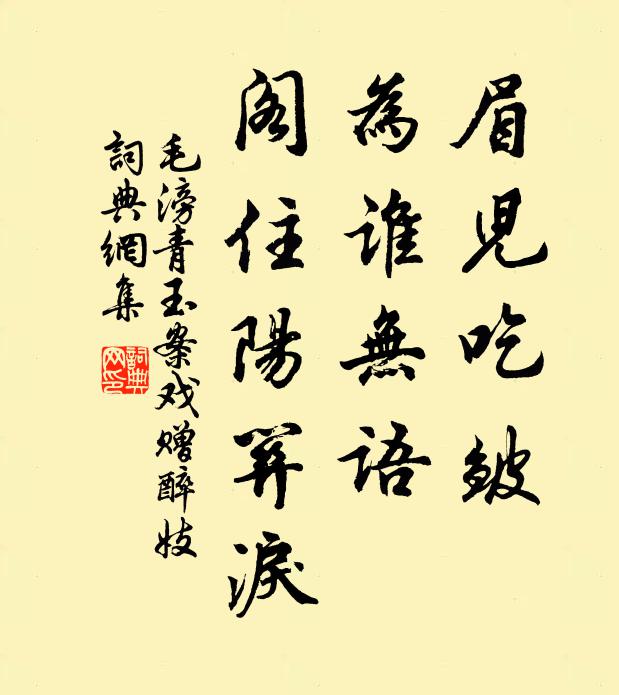 眉兒吃皺
為誰無語
閣住陽関淚
毛滂青玉案戏赠醉妓
詞典網集
詞典网印